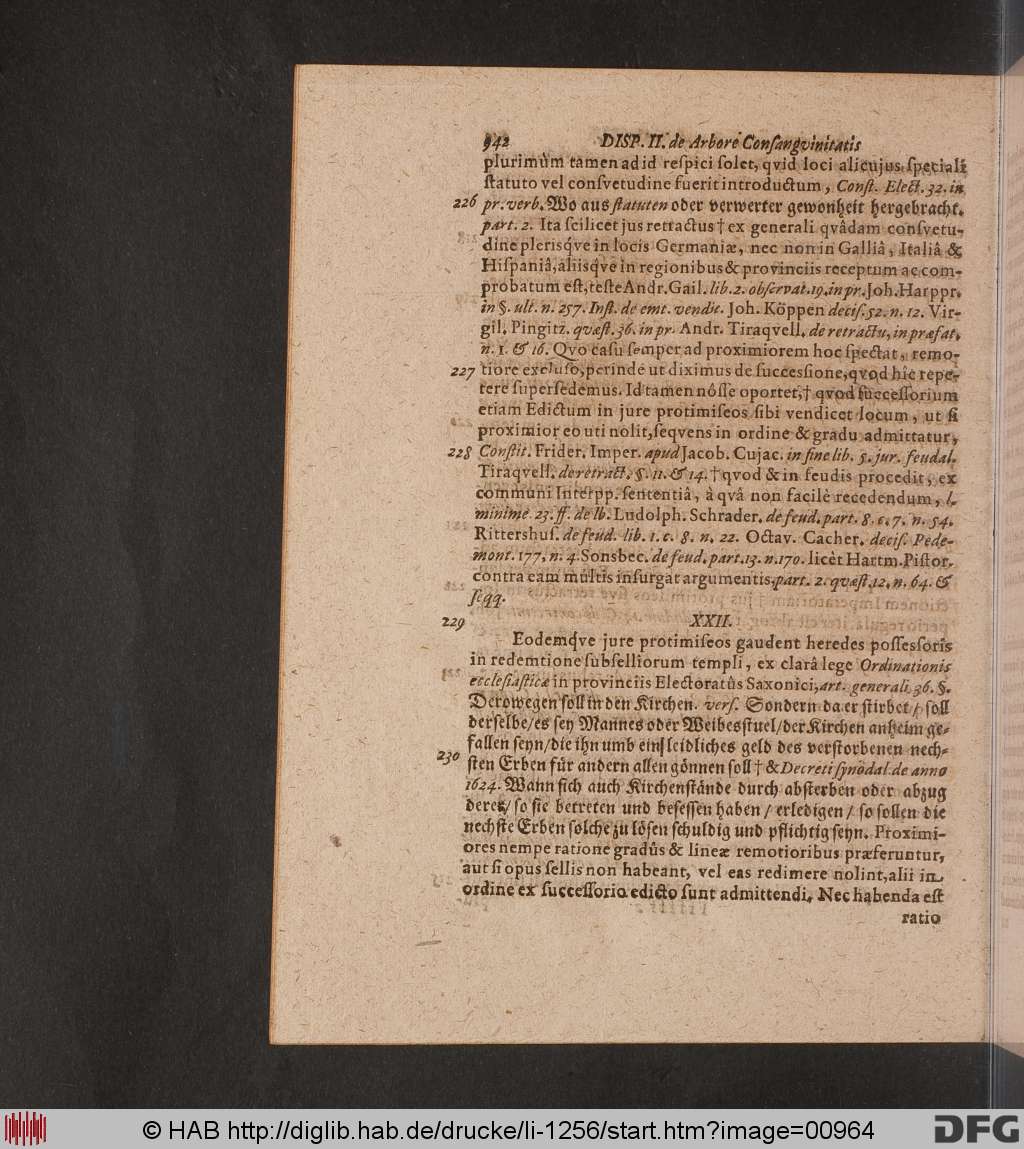 942 DISP. II. de Arbore Conſangvinitatis
plurimùm tamen ad id reſpici ſolet, qvid loci alicujus ſpeciali
ſtatuto vel conſvetudine fuerit introductum, Conſt. Elect. 32. in
226 pr. verb. Wo aus ſtatuten oder verwerter gewonheit hergebracht.
part. 2. Ita ſcilicet jus retractus † ex generali qvâdam conſvetu-
dine pleriſq́ve in locis Germaniæ, nec non in Galliâ, Italiâ &
Hiſpaniâ, aliisq́ve in regionibus & provinciis receptum ac com-
probatum eſt, teſte Andr. Gail. lib. 2. obſervat. 19. in pr. Joh. Harppr.
in §. ult. n. 257. Inſt. de emt. vendit. Joh. Köppen deciſ. 52. n. 12. Vir-
gil. Pingitz. quæſt. 36. in pr. Andr. Tiraqvell. de retractu, in præfat.
n. 1. & 16. Qvo caſu ſemper ad proximiorem hoc ſpectat, remo-
227 tiore excluſo, perinde ut diximus de ſucceſſione, qvod hîc repe-
tere ſuperſedemus. Id tamen nôſſe oportet, † qvod ſucceſſorium
etiam Edictum in jure protimiſeos ſibi vendicet locum, ut ſi
proximior eo uti nolit, ſeqvens in ordine & gradu admittatur,
228 Conſtit. Frider. Imper. apud Jacob. Cujac. in fine lib. 5. jur. feudal.
Tiraqvell. de retract. §. 11. & 14. † qvod & in feudis procedit, ex
communi Interpp. ſententiâ, à qvâ non facilè recedendum, l.
minimè 23. ff. de lb. Ludolph. Schrader. de feud. part. 8. c. 7. n. 54.
Rittershuſ. de feud. lib. 1. c. 8. n. 22. Octav. Cacher. deciſ. Pede-
mont. 177. n. 4. Sonsbec. de feud. part. 13. n. 170. licèt Hartm. Piſtor.
contra eam múltis inſurgat argumentis, part. 2. quæſt. 12. n. 64. &
ſeqq.
229 XXII.
Eodemq́ve jure protimiſeos gaudent heredes poſſeſſoris
in redemtione ſubſelliorum templi, ex clarâ lege Ordinationis
eccleſiaſticæ in provinciis Electoratûs Saxonici, art. generali 36. §.
Derowegen ſoll in den Kirchen. verſ. Sondern da er ſtirbet / ſoll
derſelbe / es ſey Mannes oder Weibesſtuel / der Kirchen anheim ge-
fallen ſeyn / die ihn umb ein leidliches geld des verſtorbenen nech-
230 ſten Erben für andern allen gönnen ſoll † & Decreti ſynodal. de anno
1624. Wann ſich auch Kirchenſtände durch abſterben oder abzug
derer / ſo ſie betreten und beſeſſen haben / erledigen / ſo ſollen die
nechſte Erben ſolche zu löſen ſchuldig und pflichtig ſeyn. Proximi-
ores nempe ratione gradûs & lineæ remotioribus præferuntur,
aut ſi opus ſellis non habeant, vel eas redimere nolint, alii in
ordine ex ſucceſſorio edicto ſunt admittendi. Nec habenda eſt
ratio
© HAB http://diglib.hab.de/drucke/li-1256/start.htm?image=00964
DFG